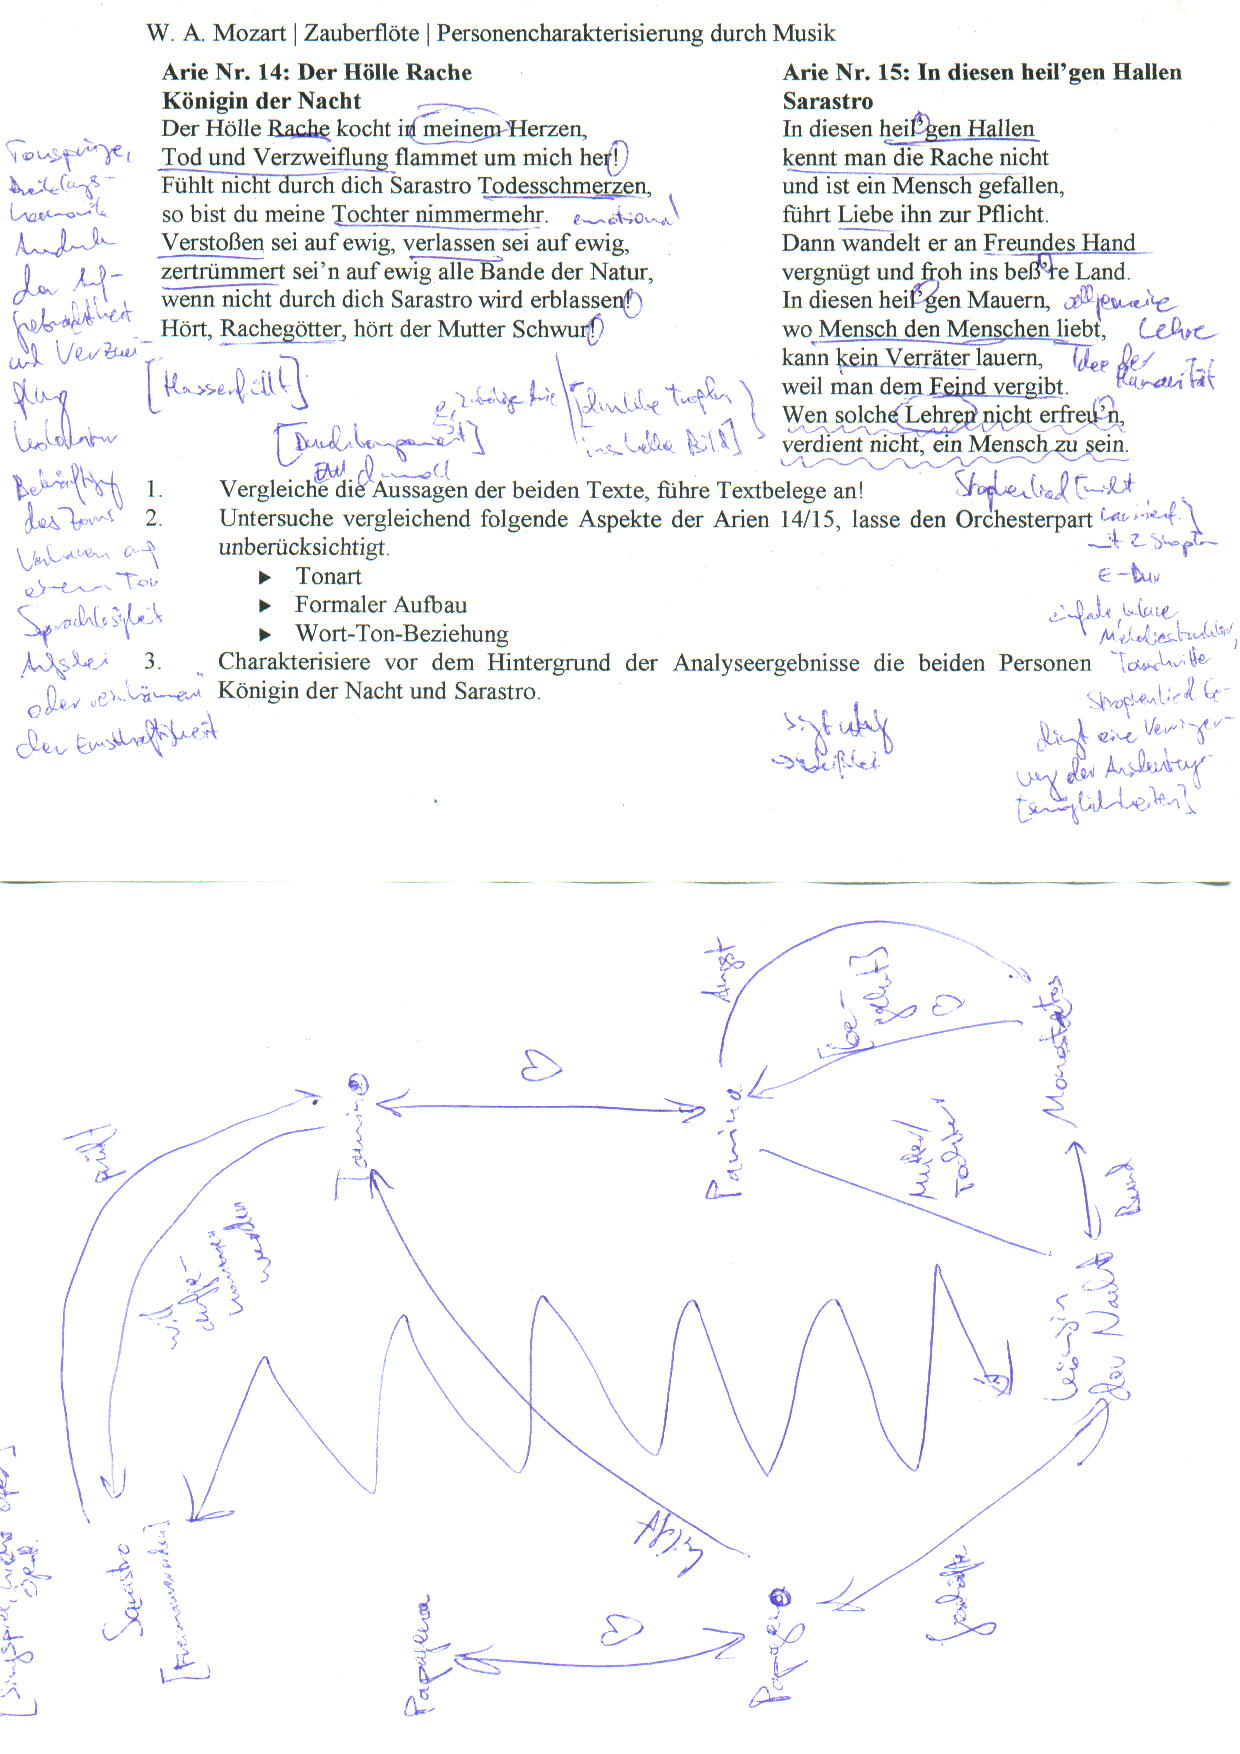 W. A. Mozart | Zauberflöte | Personencharakterisierung durch Musik
Arie Nr. 14: Der Hölle Rache
Königin der Nacht
Der Hölle Rache kocht in meinem Herzen,
Tod und Verzweiflung flammet um mich her!
Fühlt nicht durch dich Sarastro Todesschmerzen,
so bist du meine Tochter nimmermehr.
emotional
Verstoßen sei auf ewig, verlassen sei auf ewig,
zertrümmert sei'n auf ewig alle Bande der Natur,
wenn nicht durch dich Sarastro wird erblassen!
Hört, Rachegötter, hört der Mutter Schwur!
Arie Nr. 15: In diesen heil'gen Hallen
Sarastro
In diesen heil'gen Hallen
kennt man die Rache nicht
und ist ein Mensch gefallen,
führt Liebe ihn zur Pflicht.
Dann wandelt er an Freundes Hand
vergnügt und froh ins beß're Land.
In diesen heil'gen Mauern,
wo Mensch den Menschen liebt,
kann kein Verräter lauern,
weil man dem Feind vergibt.
Wen solche Lehren nicht erfreu'n,
verdient nicht, ein Mensch zu sein.
allgemeine
Lehre
Idee der
Humanität
Tonsprünge,
Dreiklangs-
harmonik
Ausdruck
der Auf-
gebrachtheit
und Verzwei-
flung
Koloratur
Bekräftigung
des Zorns
Verharren auf
einem Ton
Sprachlosigkeit
oder
der Ernsthaftigkeit
[Hasserfüllt]
[Durchkomponiert]
d moll
ins helle Bild]
1. Vergleiche die Aussagen der beiden Texte, führe Textbelege an!
2. Untersuche vergleichend folgende Aspekte der Arien 14/15, lasse den Orchesterpart
unberücksichtigt.
► Tonart
► Formaler Aufbau
► Wort-Ton-Beziehung
3. Charakterisiere vor dem Hintergrund der Analyseergebnisse die beiden Personen
Königin der Nacht und Sarastro.
Strophenlied [nicht
variiert]
mit 2 Strophen
E-Dur
einfache, klare
Melodiestruktur,
Tonschritte
Strophenlied be-
dingt eine Verringer-
ung der Ausdeutungs-
[möglichkeiten]
Angst
[be-
gehrt]
Monostatos
Tamino
Pamina
Mutter/
Tochter
Bund
prüft
will
aufge-
nommen
werden
Königin
der Nacht
Sarastro
[Freimaurerorden]
[Singspiel, nicht Oper]
Papagena
Papageno
Geschäfte